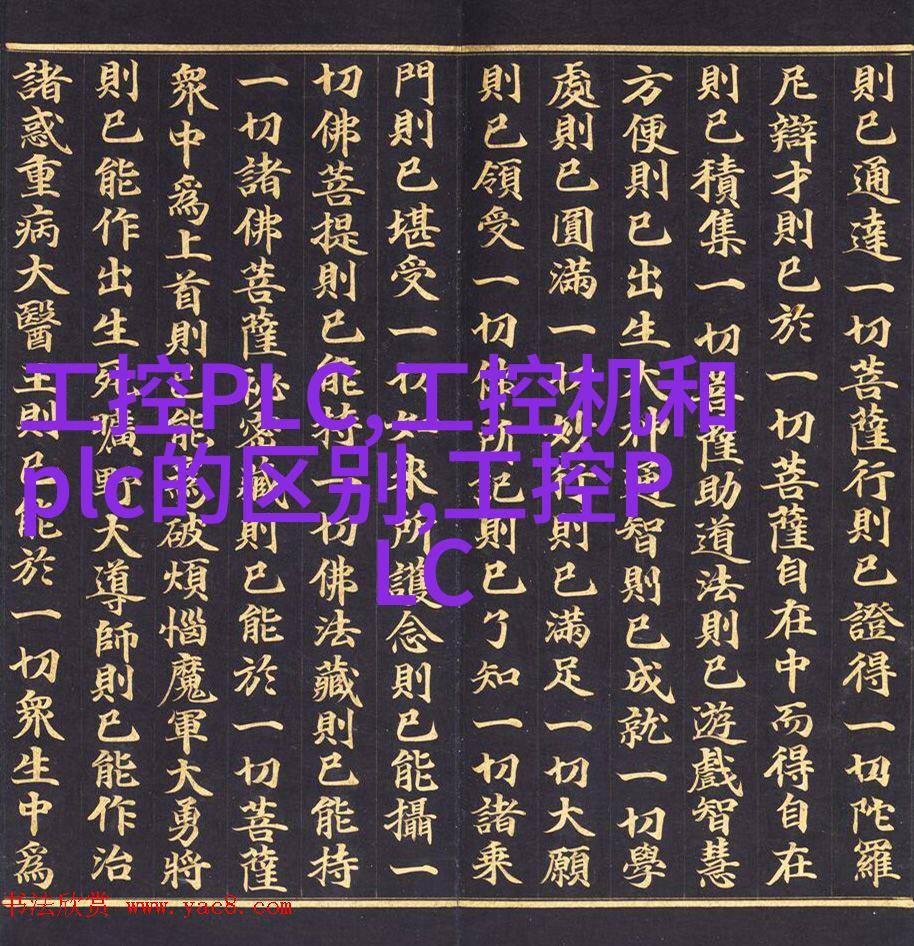 則已通達一切菩薩行則已證得一切陀羅
尼辯才則已於一切菩薩自在中而得自在
則已積集一切菩薩助道法則已遊戲智慧
方便則已出生大神通智則已成就一切學
處則已圓滿一切妙行則已滿足一切大願
則已領受一切佛所記則已了知一切諸乘
門則已堪受一切如來所護念則已能攝一
切佛菩提則已能持一切佛法藏則已能持
一切諸佛菩薩祕密藏則已能於一切菩薩
衆中爲上首則已能爲破煩惱魔軍大勇將
則已能作出生死曠野大導師則已能作治
諸惑重病大醫王則已能於一切衆生中爲
工控PLC,工控机和
plc的区别,工控P
LC
书法欣赏 www.yac8.com